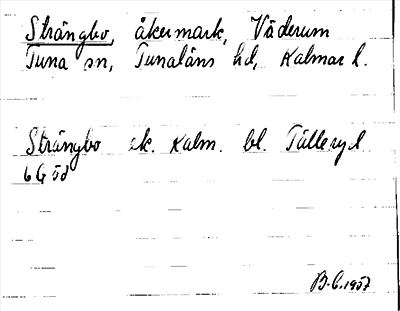 Strängbo, åkermark, Väderum
Tuna sn, Tunaläns hd, Kalmar l.
Strängbo ek. Kalm. bl. Tålleryd
6G öd
B.C. 1957